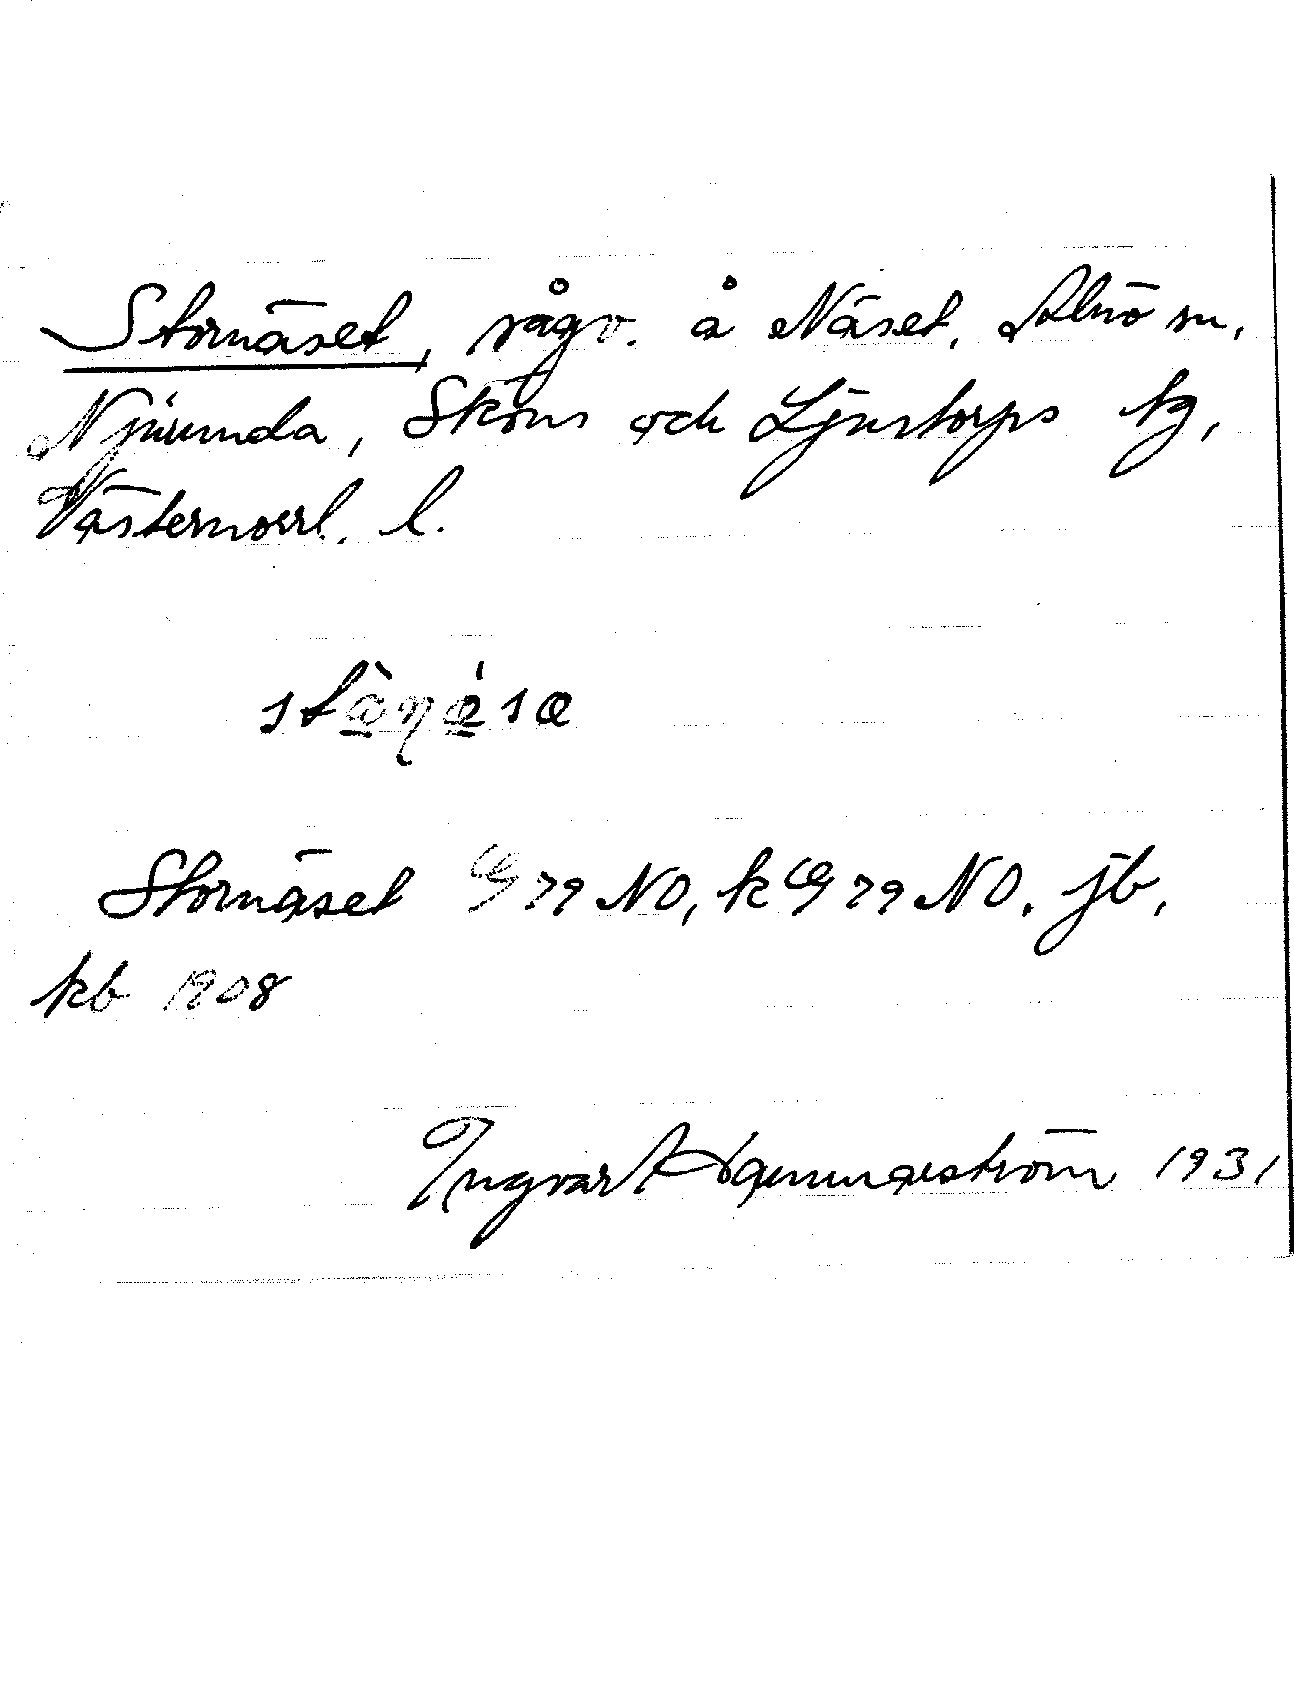 Stornäset, sågv. å Näset, Alnö sn,
Njurunda, Sköns och Ljustorps tg,
Västernorrl. l.
Stornäset G 79 NO, k G 79 NO. jb,
kb 1908
Ingvar 1931